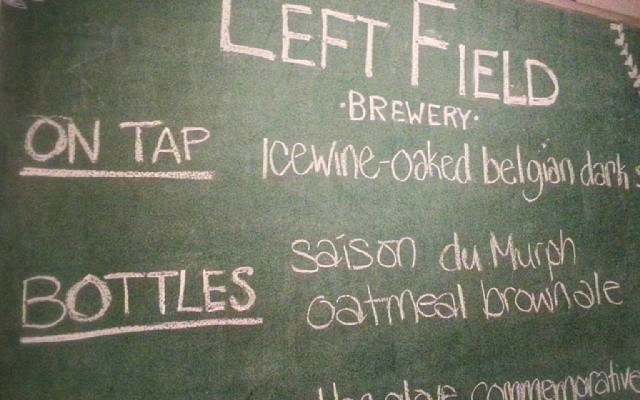 LEFT FIELD
·BREWERY·
ON TAP Icewine-oaked belgian dark
BOTTLES saison du Murph
oatmeal brown ale
commemorative